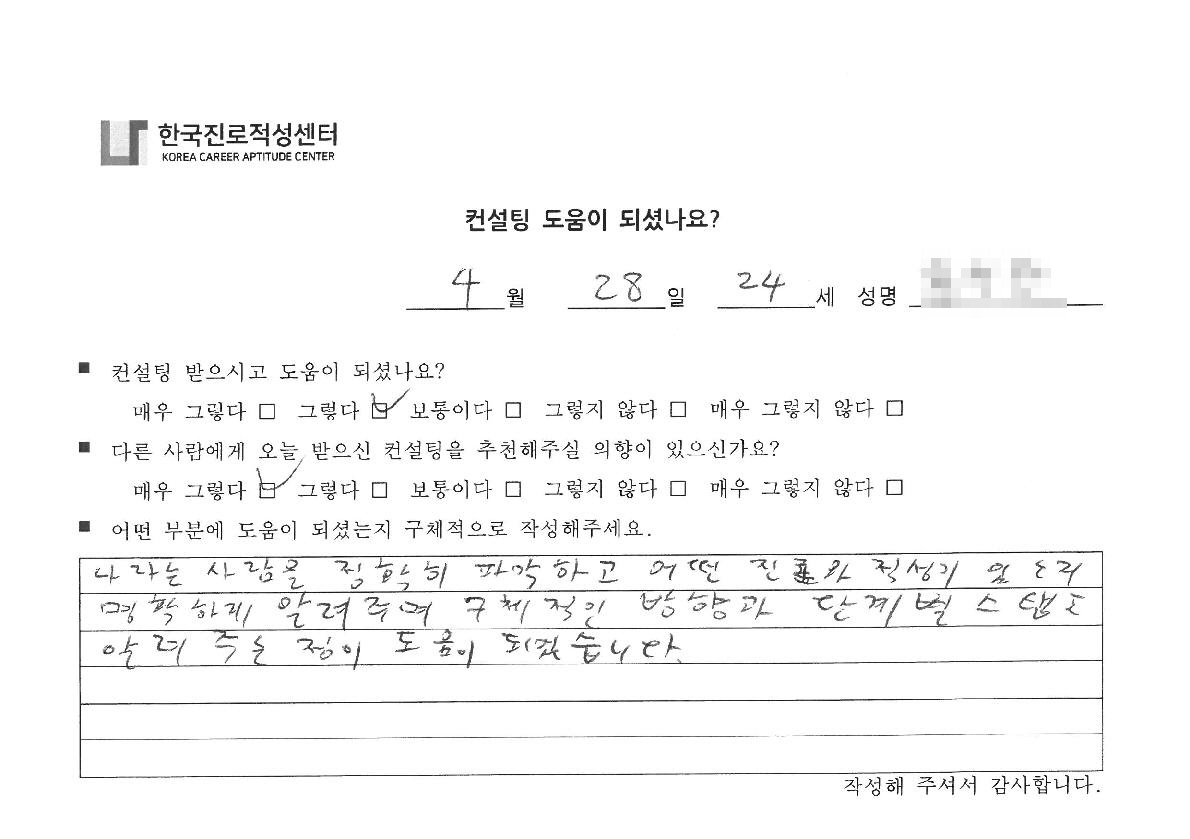 한국진로적성센터
KOREA CAREER APTITUDE CENTER
컨설팅 도움이 되셨나요?
4 월 28 일 24 세 성명
■ 컨설팅 받으시고 도움이 되셨나요?
매우 그렇다 □ 그렇다 ☑ 보통이다 □ 그렇지 않다 □ 매우 그렇지 않다 □
■ 다른 사람에게 오늘 받으신 컨설팅을 추천해주실 의향이 있으신가요?
매우 그렇다 ☑ 그렇다 □ 보통이다 □ 그렇지 않다 □ 매우 그렇지 않다 □
■ 어떤 부분에 도움이 되셨는지 구체적으로 작성해주세요.
나라는 사람을 정확히 파악하고 어떤 진로와 적성이 있는지
명확하게 알려주며 구체적인 방향과 단계별 스탭도
알려 주는 점이 도움이 되었습니다.
작성해 주셔서 감사합니다.